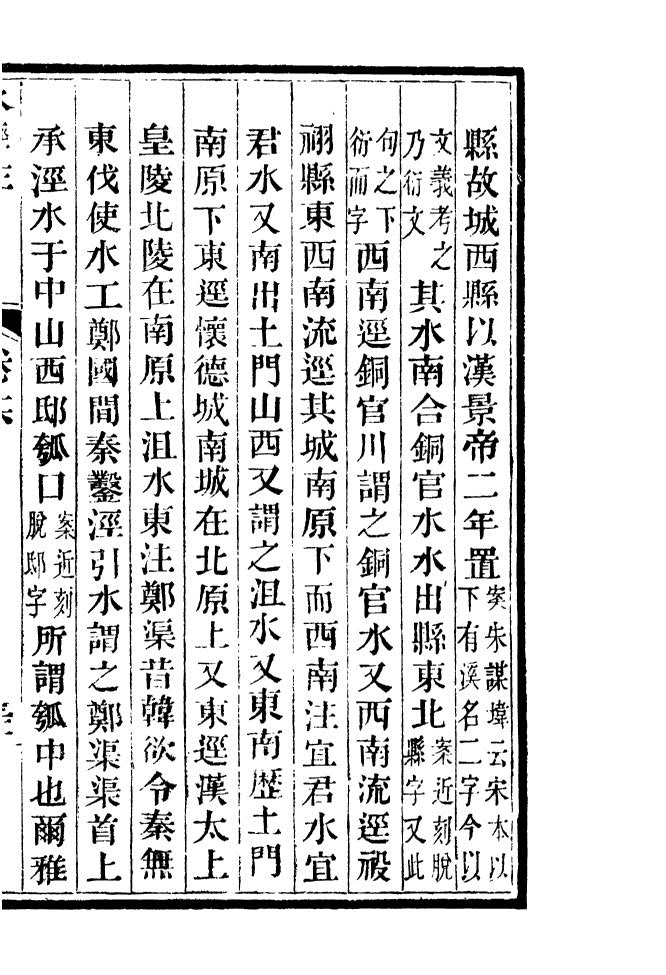 縣故城西縣以漢景帝二年置案朱謀㙔云宋本以下有溪名二字今以
文義考之乃衍文其水南合銅官水水出縣東北案近刻脫縣字又此
句之下衍而字西南逕銅官川謂之銅官水又西南流逕祋
祤縣東西南流逕其城南原下而西南注宜君水宜
君水又南出土門山西又謂之沮水又東南歷土門
南原下東逕懷德城南城在北原上又東逕漢太上
皇陵北陵在南原上沮水東注鄭渠昔韓欲令秦無
東伐使水工鄭國間秦鑿涇引水謂之鄭渠渠首上
承涇水于中山西邸瓠口案近刻脫邸字所謂瓠中也爾雅